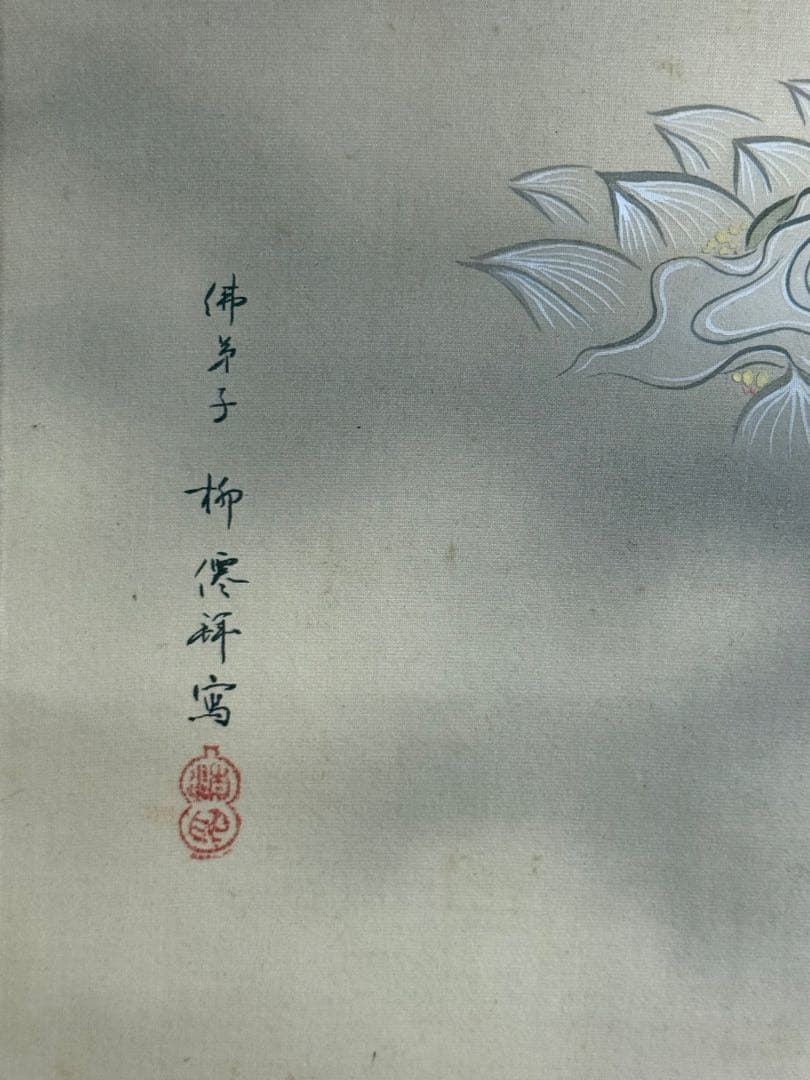 佛弟子 柳僊祥寫